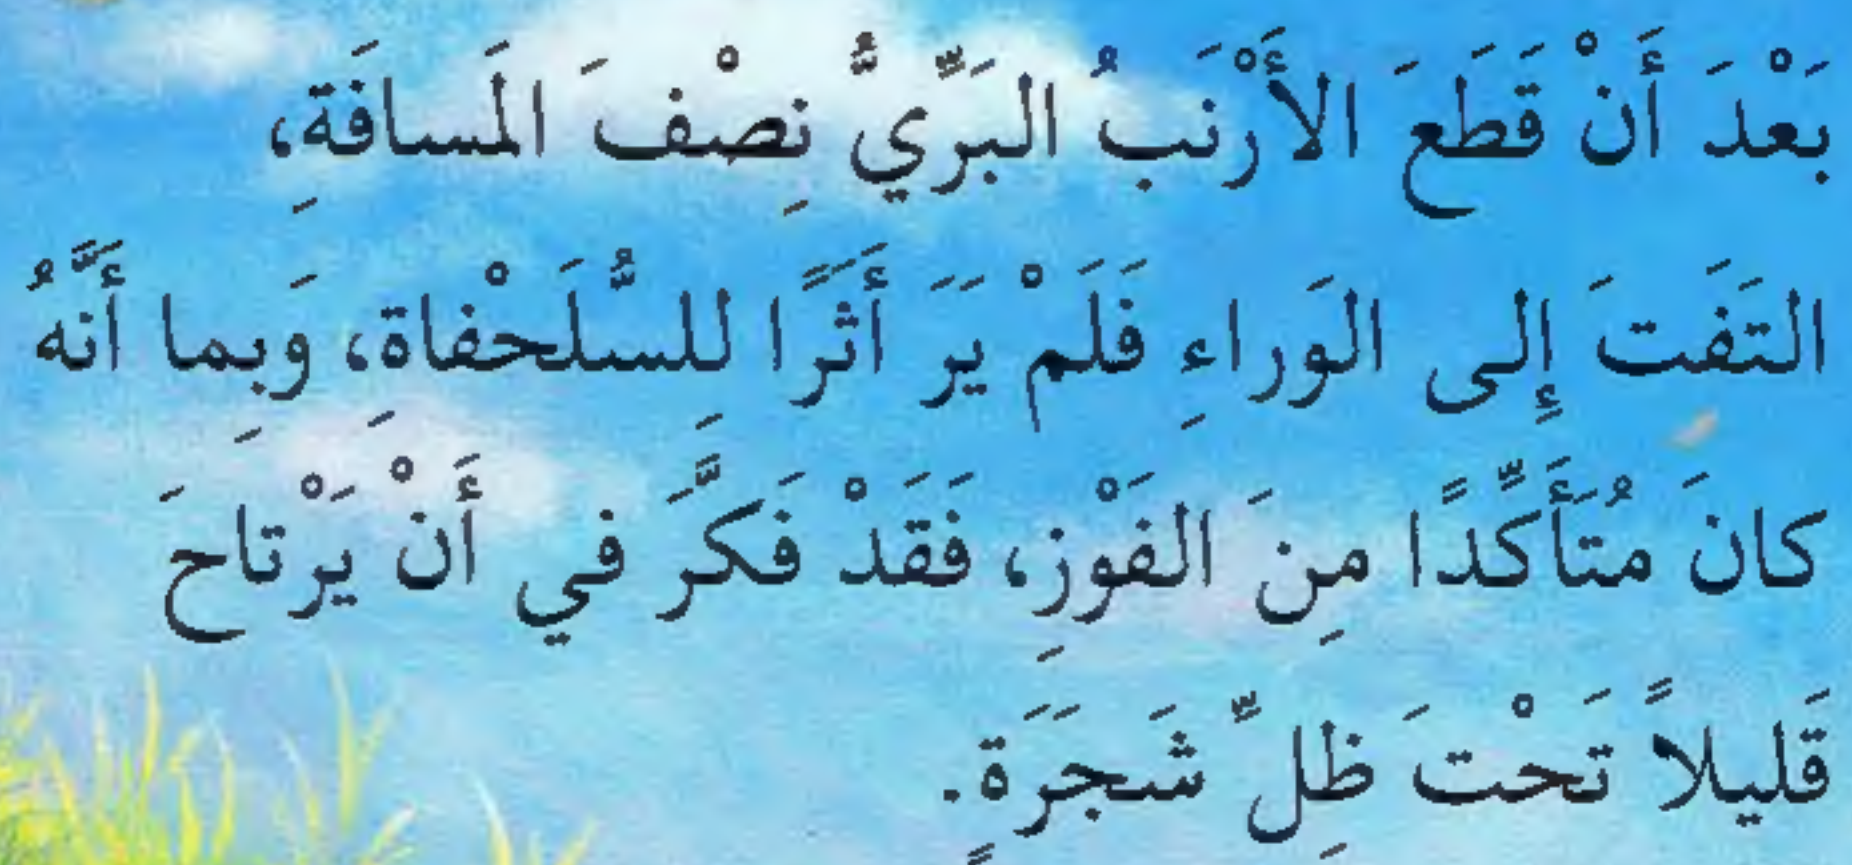 بَعْدَ أَنْ قَطَعَ الأَرْنَبُ البَرِّيُّ نِصْفَ المَسافَةِ،
التَفَتَ إِلى الوَراءِ فَلَمْ يَرَ أَثَرًا لِلسُّلَحْفاةِ، وَبِما أَنَّهُ
كانَ مُتَأَكِّدًا مِنَ الفَوْزِ، فَقَدْ فَكَّرَ في أَنْ يَرْتاحَ
قَليلاً تَحْتَ ظِلِّ شَجَرَةٍ.